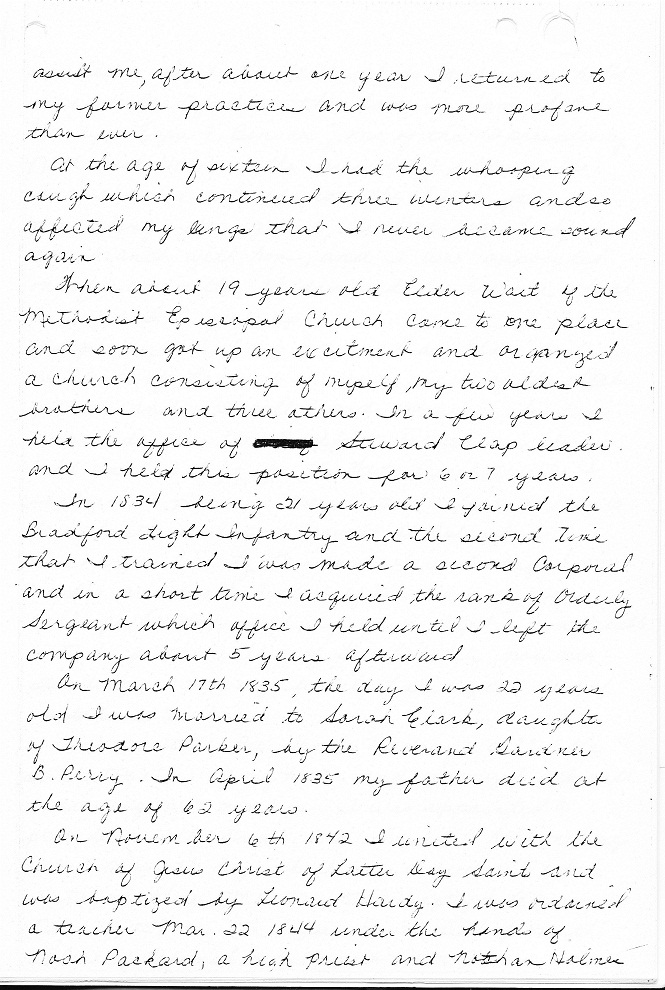 assist me, after about one year I returned to
my former practices and was more profane
than ever.
At the age of sixteen I had the whooping
cough which continued three winters and so
affected my lungs that I never became sound
again
When about 19 years old Elder Wait of the
Methodist Episcopal Church came to one place
and soon got up an excitment and organized
a church consisting of myself, my two oldest
brothers and three others. In a few years I
held the office of Steward Clap leader.
and I held this position for 6 or 7 years.
In 1834 being 21 years old I joined the
Bradford Light Infantry and the second time
that I trained I was made a second Corporal
and in a short time I acquired the rank of Orderly
Sergeant which office I held until I left the
company about 5 years afterward
On March 17th 1835, the day I was 22 years
old I was married to Sarah Clark, daughter
of Theodore Parker, by the Reverand Gardner
B. Perry. In April 1835 my father died at
the age of 62 years.
On November 6th 1842 I united with the
Church of Jesus Christ of Latter Day Saint and
was baptized by Leonard Hardy. I was ordained
a teacher Mar. 22 1844 under the hands of
Noah Packard, a high priest and Nathan Holmes